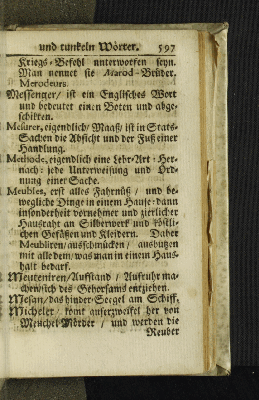 und tunkeln Wörter. 597
Kriegs-Befehl unterworffen seyn.
Man nennet sie Marod-Brüder.
Merodeurs.
Messenger/ ist ein Englisches Wort
und bedeutet einen Boten und abge-
schikten.
Mesurer, eigendlich/ Maaß/ ist in Stats-
Sachen die Absicht und der Fuß einer
Handlung.
Methode, eigendlich eine Lehr-Art. Her-
nach: jede Unterweisung und Ord-
nung einer Sache.
Meubles, erst alles Fahrnüß / und be-
wegliche Dinge in einem Hause: dann
insonderheit vornehmer und zierlicher
Hausraht an Silberwerk und köstli-
chen Gefäßen und Kleidern. Daher
Meubliren/ ausschmücken / ausbutzen
mit alle dem/ was man in einem Haus-
halt bedarf.
Meuteniren/ Aufstand / Aufruhr ma-
chen/ sich des Gehorsams entziehen.
Mesan/ das hinder-Seegel am Schiff.
Micheler/ komt auserzweifel her von
Meuchel-Mörder / und werden die
Reuber